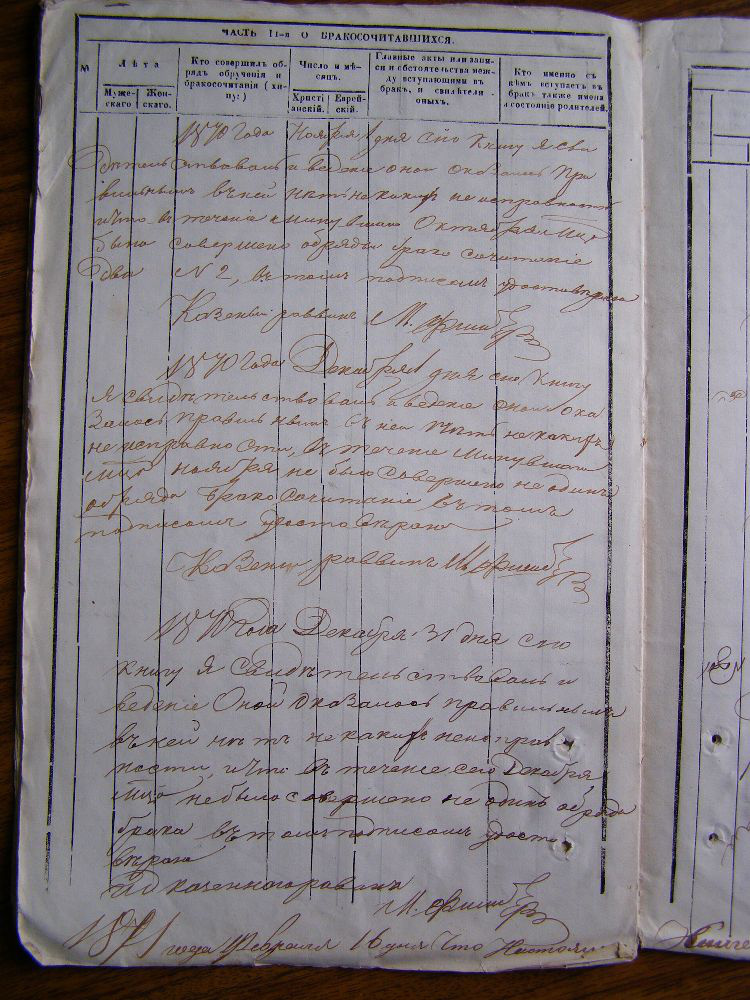 ЧАСТЬ II-я О БРАКОСОЧИТАВШИХСЯ.
№
Лѣта
Муже-
скаго
Жен-
скаго.
Кто совершил об-
рядъ обрученія и
бракосочитанія (ху-
пу:)
Число и мѣ-
сяцъ.
Христі-
анскій.
Еврей-
скій.
Главные акты или запи-
си и обстоятельства меж-
ду вступающими въ
бракъ, и свидѣтели
оныхъ.
Кто именно съ
кѣмъ вступаетъ въ
бракъ также имена
и состояніе родителей.
1870 года Ноября 1 дня сію книгу я сви
дѣтельствовалъ и веденіе оной оказалось пра
вильнымъ въ ней нѣтъ не какихъ не исправностей
и что въ теченіе минувшаго Октября мца
было совершено обряды брако сочитаніе
два № 2, въ томъ подписомъ удостовѣряю
Казенный раввинъ М.
1870 года Декабря 1 дня сію книгу
я свидѣтельствовалъ и веденіе оной ока
залось правильнымъ въ ней нѣтъ не какихъ
не исправности, въ теченіе минувшаго
мца ноября не было совершено не одинъ
обряда брако сочитаніе въ томъ
подписомъ удостовѣряю
Казенный раввинъ М.
1870 года Декабря 31 дня сію
книгу я свидѣтельствовалъ и
веденіе оной оказалось правильнымъ
въ ней нѣтъ не какихъ неисправ
ности, и что въ теченіе сего Декабря
мца не было совершено не одинъ обряда
брака въ томъ подписомъ удосто
вѣряю
М.
1871 года Февраля 16 дня что Настоящ
Книге